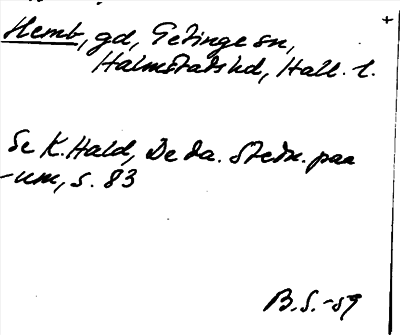 Hemb, gd, Getinge sn,
Halmstads hd, Hall. l.
Se K. Hald, De da. Stedn. paa
-um, s. 83
B.S.-59